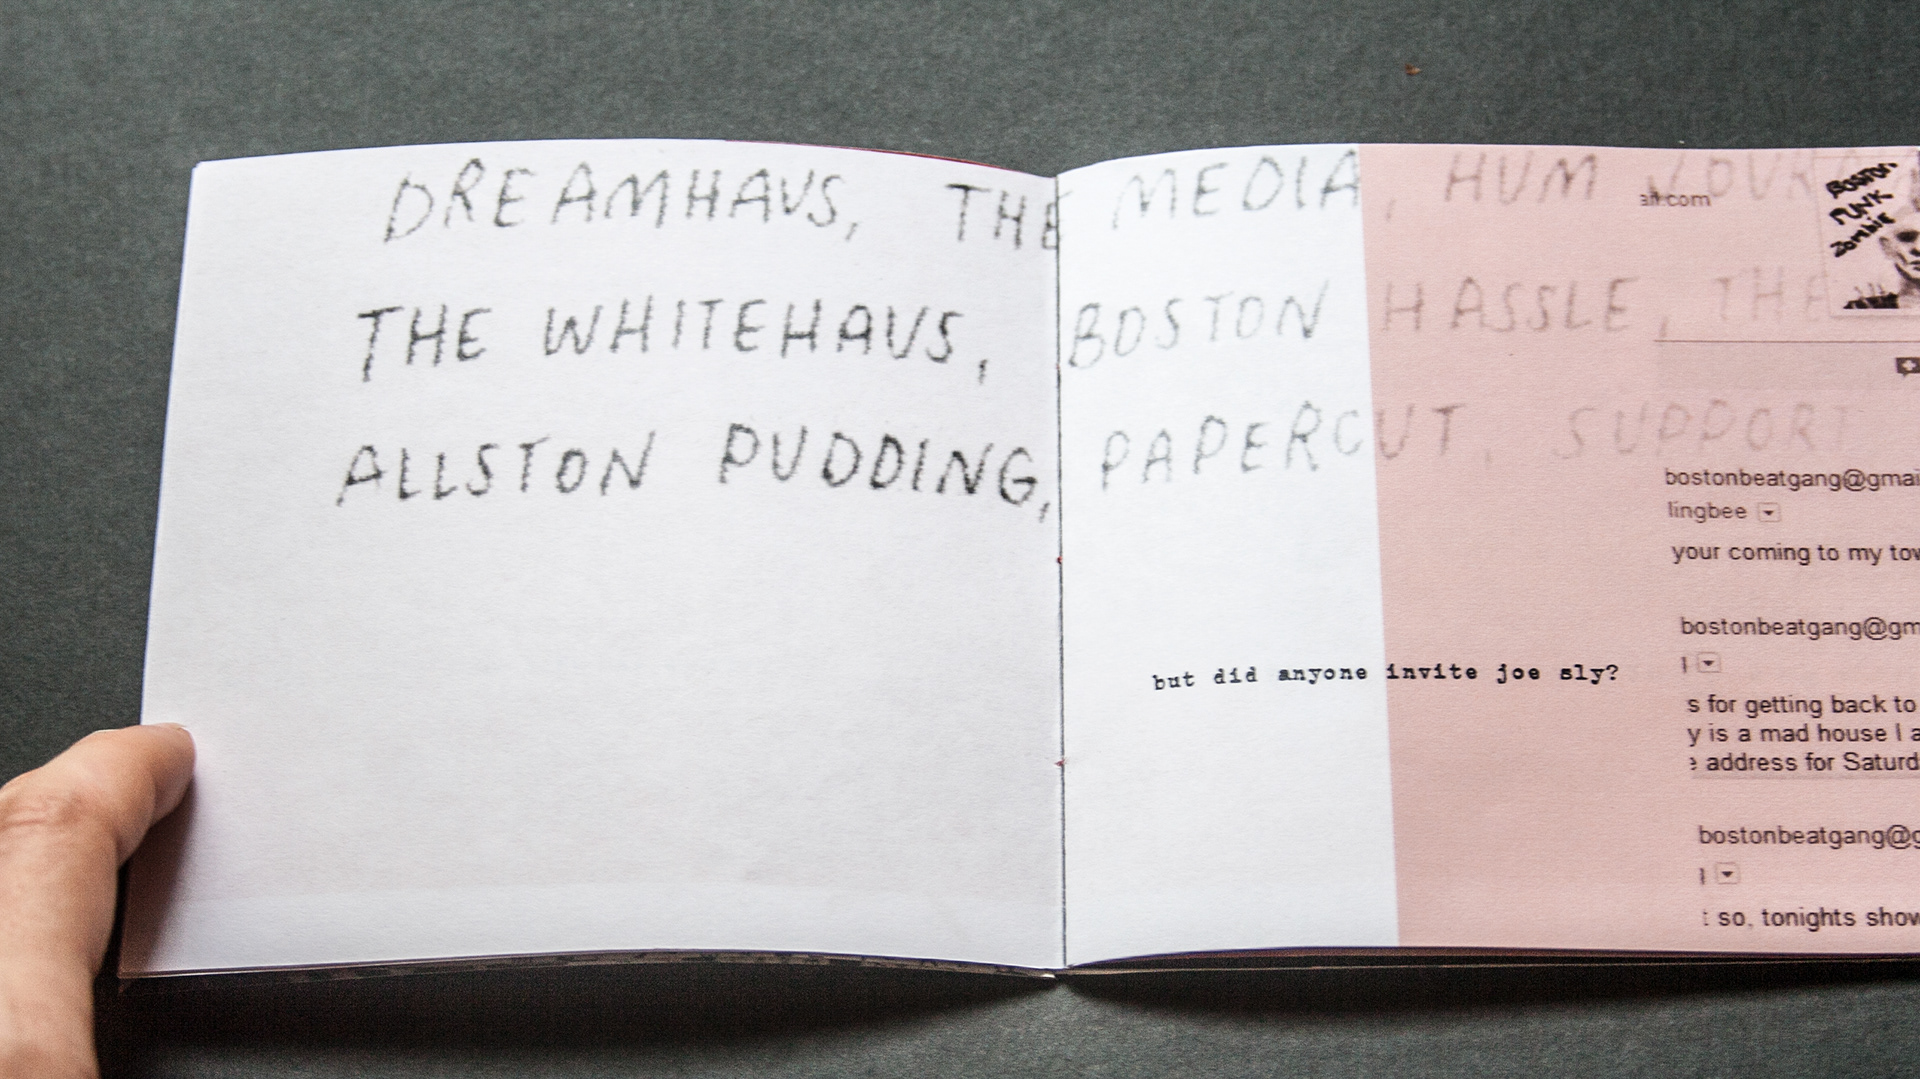 DREAMHAUS, THE MEDIA, HUM
THE WHITEHAUS, BOSTON HASSLE, THE
ALLSTON PUDDING, PAPERCUT, SUPPORT
ail.com
BOSTON
PUNK
Zombie
but did anyone invite joe sly?
bostonbeatgang@gmai
lingbee
your coming to my tow
bostonbeatgang@gm
l
s for getting back to
y is a mad house I a
e address for Saturd
bostonbeatgang@g
l
t so, tonights show